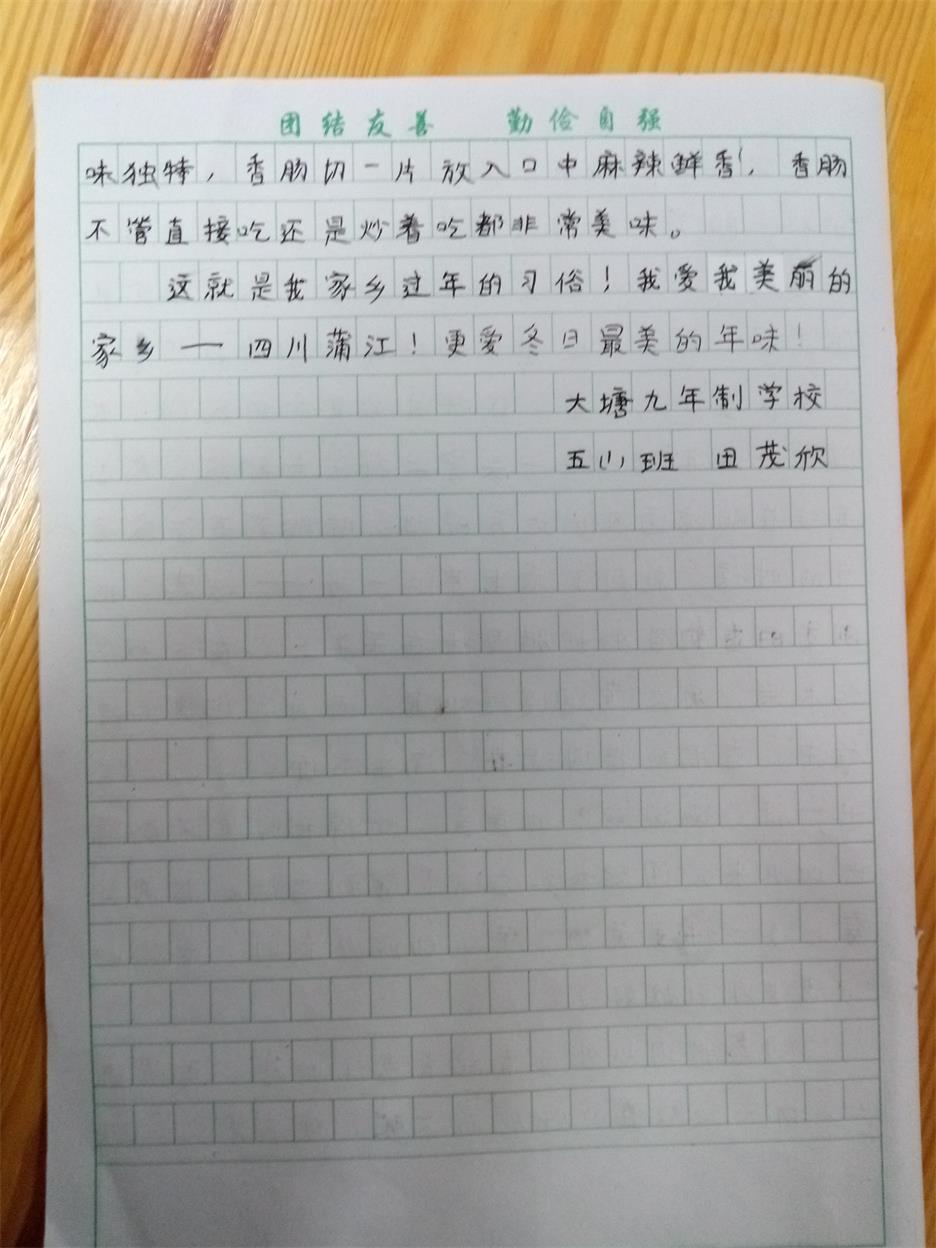 团结友善 勤俭自强
味独特，香肠切一片放入口中麻辣鲜香，香肠
不管直接吃还是炒着吃都非常美味。
这就是我家乡过年的习俗！我爱我美丽的
家乡一四川蒲江！更爱冬日最美的年味！
大塘九年制学校
五(1)班 田茂欣